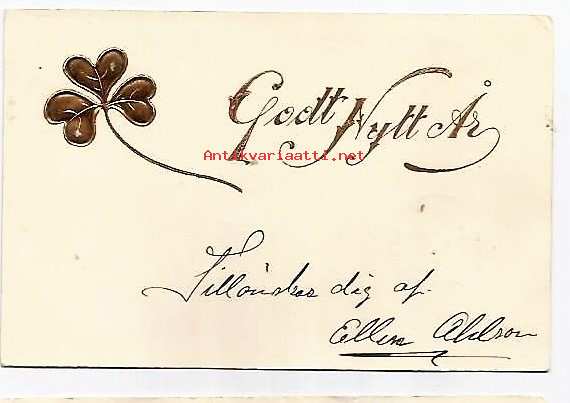 Godt Nytt År
Antikvariaatti.net
Tillönskas dig af
Ellen